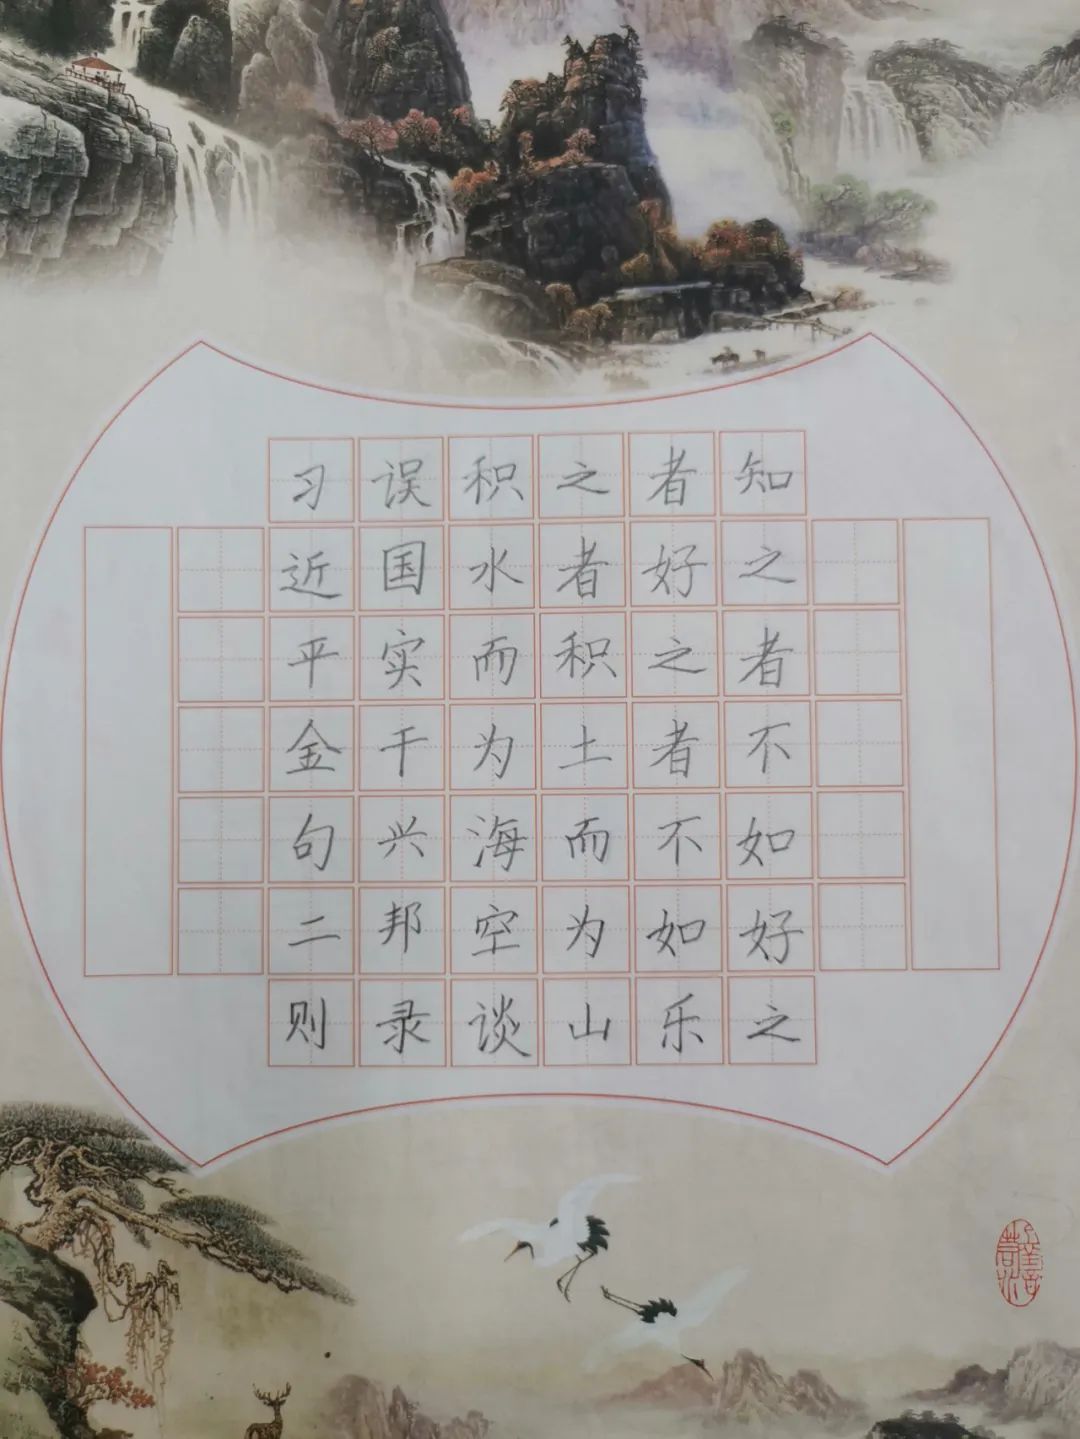 知之者不如好之
者好之者不如乐
之者积土而为山
积水而为海空谈
误国实干兴邦录
习近平金句二则
上善若水